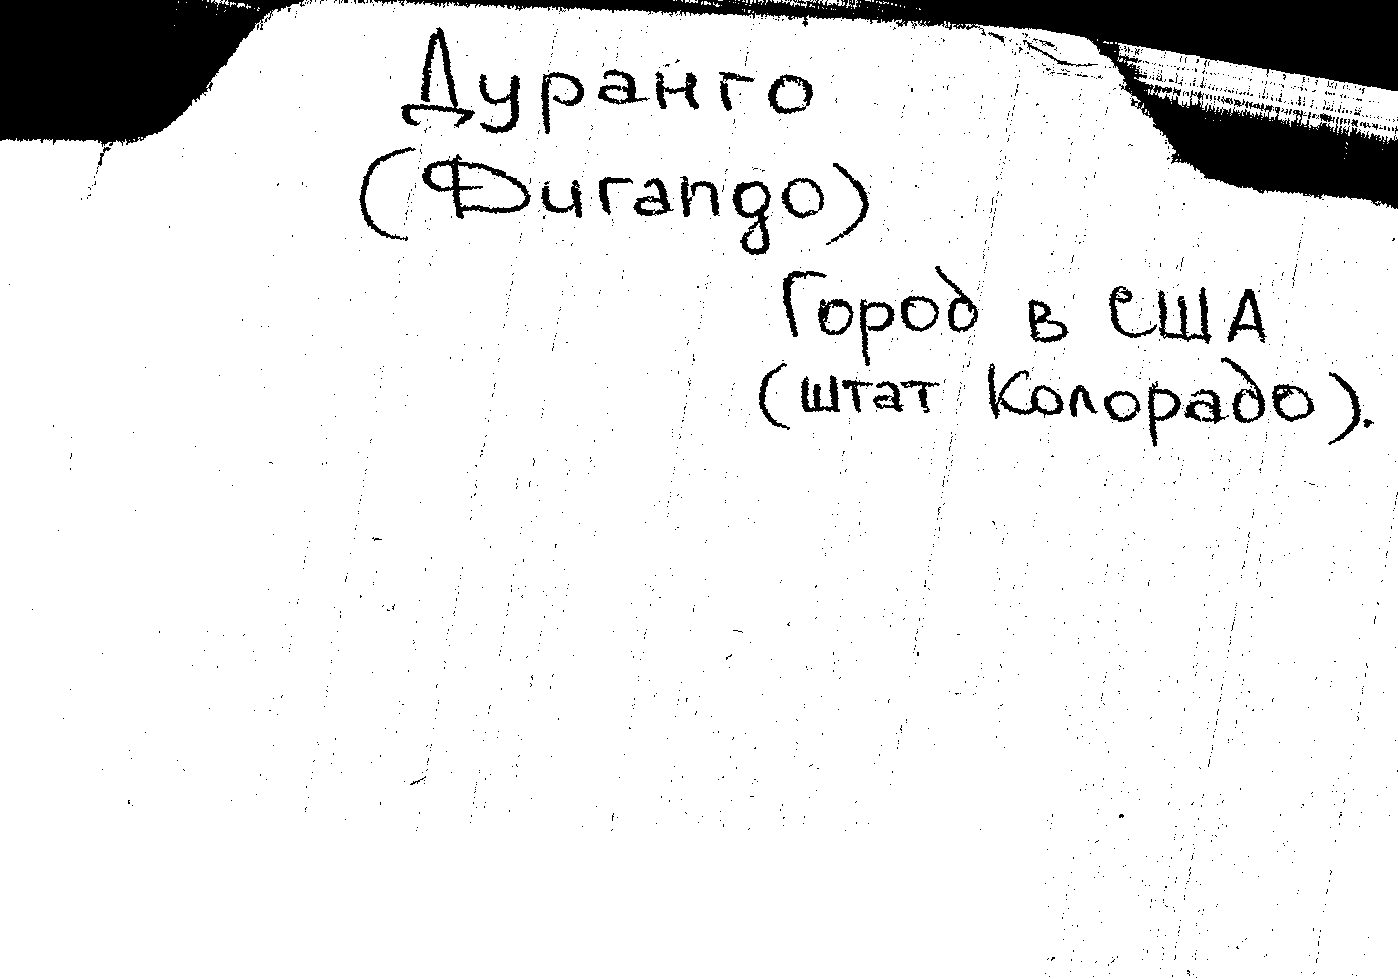 Дуранго
(Durango)
Город в США
(штат Колорадо).